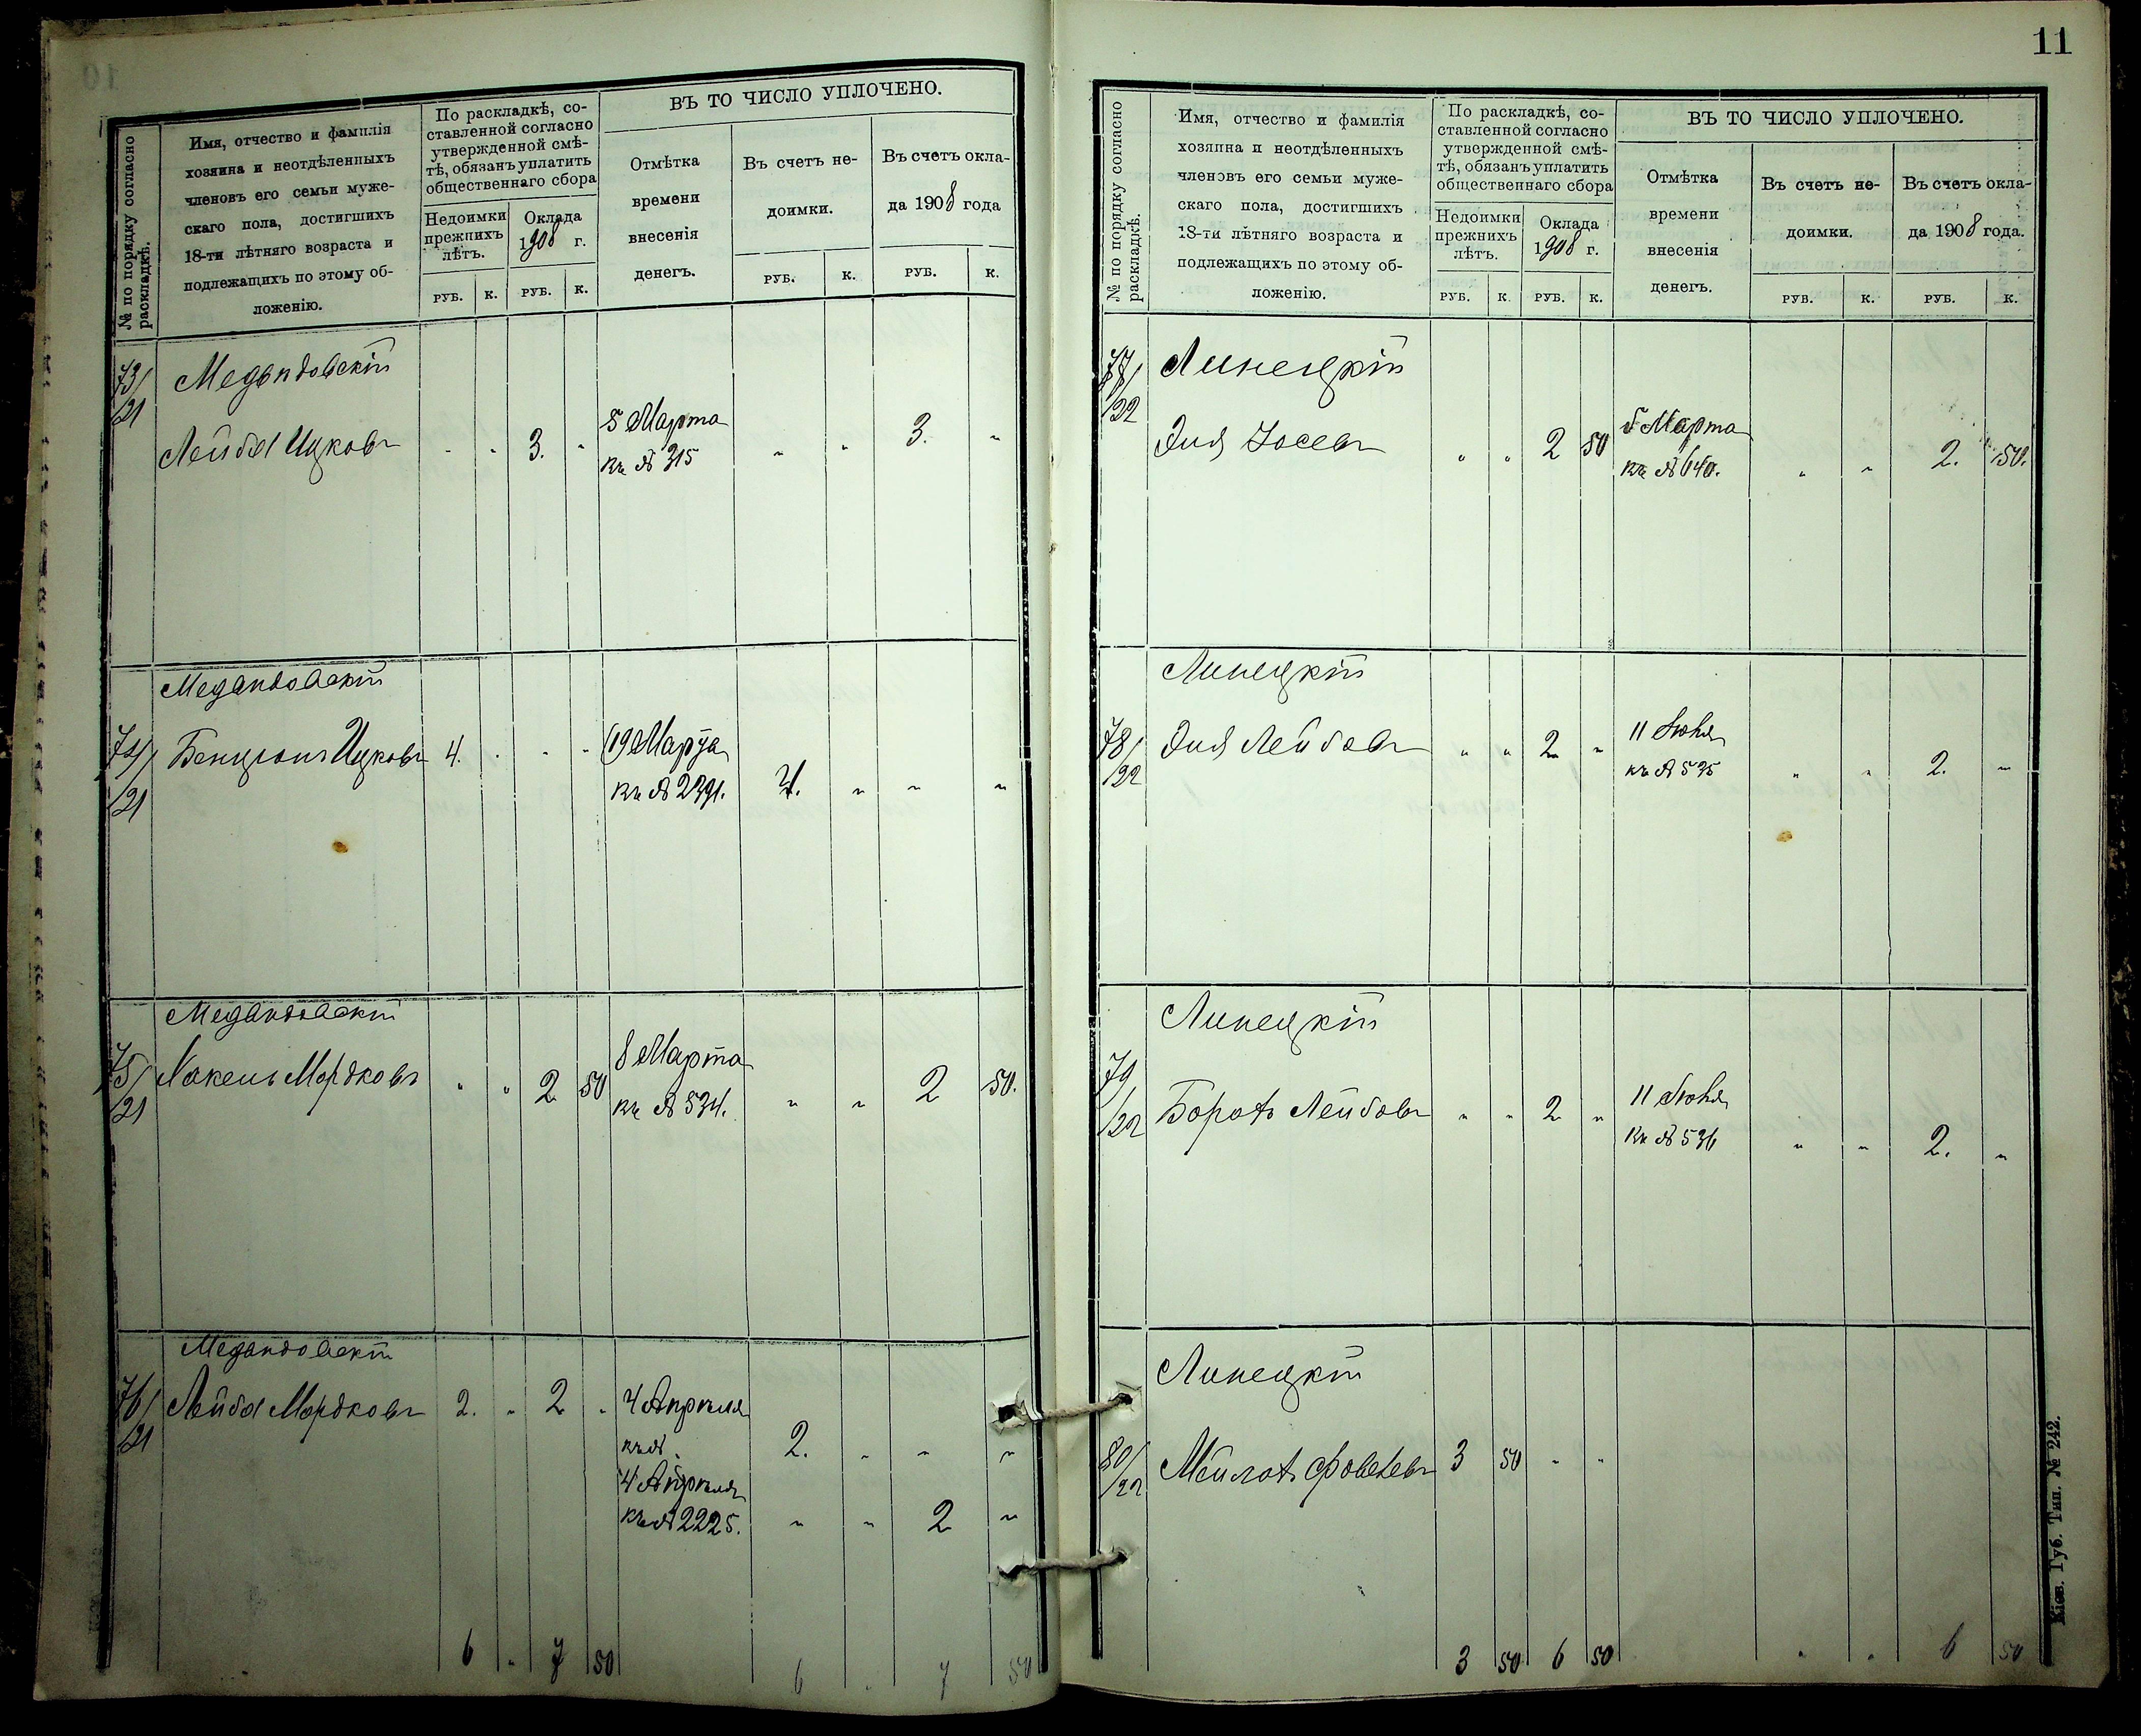 ВЪ ТО ЧИСЛО УПЛОЧЕНО.
№ по порядку согласно
раскладкѣ.
Имя, отчество и фамилія
хозяина и неотдѣленныхъ
членовъ его семьи муже-
скаго пола, достигшихъ
18-ти лѣтняго возраста и
подлежащихъ по этому об-
ложенію.
По раскладкѣ, со-
ставленной согласно
утвержденной смѣ-
тѣ, обязанъ уплатить
общественнаго сбора
Недоимки
прежнихъ
лѣтъ.
Оклада
1908 г.
Отмѣтка
времени
внесенія
денегъ.
Въ счетъ не-
доимки.
Въ счетъ окла-
да 1908 года
РУБ. К. РУБ. К. РУБ. К. РУБ. К.
73/21 Медвидовскій
Лейба Ицковъ " " 3. " 5 Марта
къ № 315 " " 3. "
Медвидовскій
74/21 Бенціонъ Ицковъ 4. " " " 19 Марта
къ № 2391. 4. " " "
Медвидовскій
75/21 Мордковъ " " 2 50 8 Марта
къ № 534. " " 2 50.
Медвидовскій
76/21 Лейба Мордковъ 2. " 2 " 4 Апрѣля
къ № 2. " " "
4 Апрѣля
къ № 2225. " " 2 "
6 " 7 50 6 " 7 50
11
ВЪ ТО ЧИСЛО УПЛОЧЕНО.
№ по порядку согласно
раскладкѣ.
Имя, отчество и фамилія
хозяина и неотдѣленныхъ
членовъ его семьи муже-
скаго пола, достигшихъ
18-ти лѣтняго возраста и
подлежащихъ по этому об-
ложенію.
По раскладкѣ, со-
ставленной согласно
утвержденной смѣ-
тѣ, обязанъ уплатить
общественнаго сбора
Недоимки
прежнихъ
лѣтъ.
Оклада
1908 г.
Отмѣтка
времени
внесенія
денегъ.
Въ счетъ не-
доимки.
Въ счетъ окла-
да 1908 года.
РУБ. К. РУБ. К. РУБ. К. РУБ. К.
77/22 Липецкій
Эля Іосевъ " " 2 50 5 Марта
къ № 640. " " 2. 50.
Липецкій
78/22 Эля Лейбовъ " " 2 " 11 Іюня
къ № 535 " " 2. "
Липецкій
79/22 Борохъ Лейбовъ " " 2 " 11 Іюня
къ № 536 " " 2. "
Липецкій
80/22 Мейлохъ 3 50 " "
3 50 6 50 " " 6 50
Кіев. Губ. Тип. № 242.